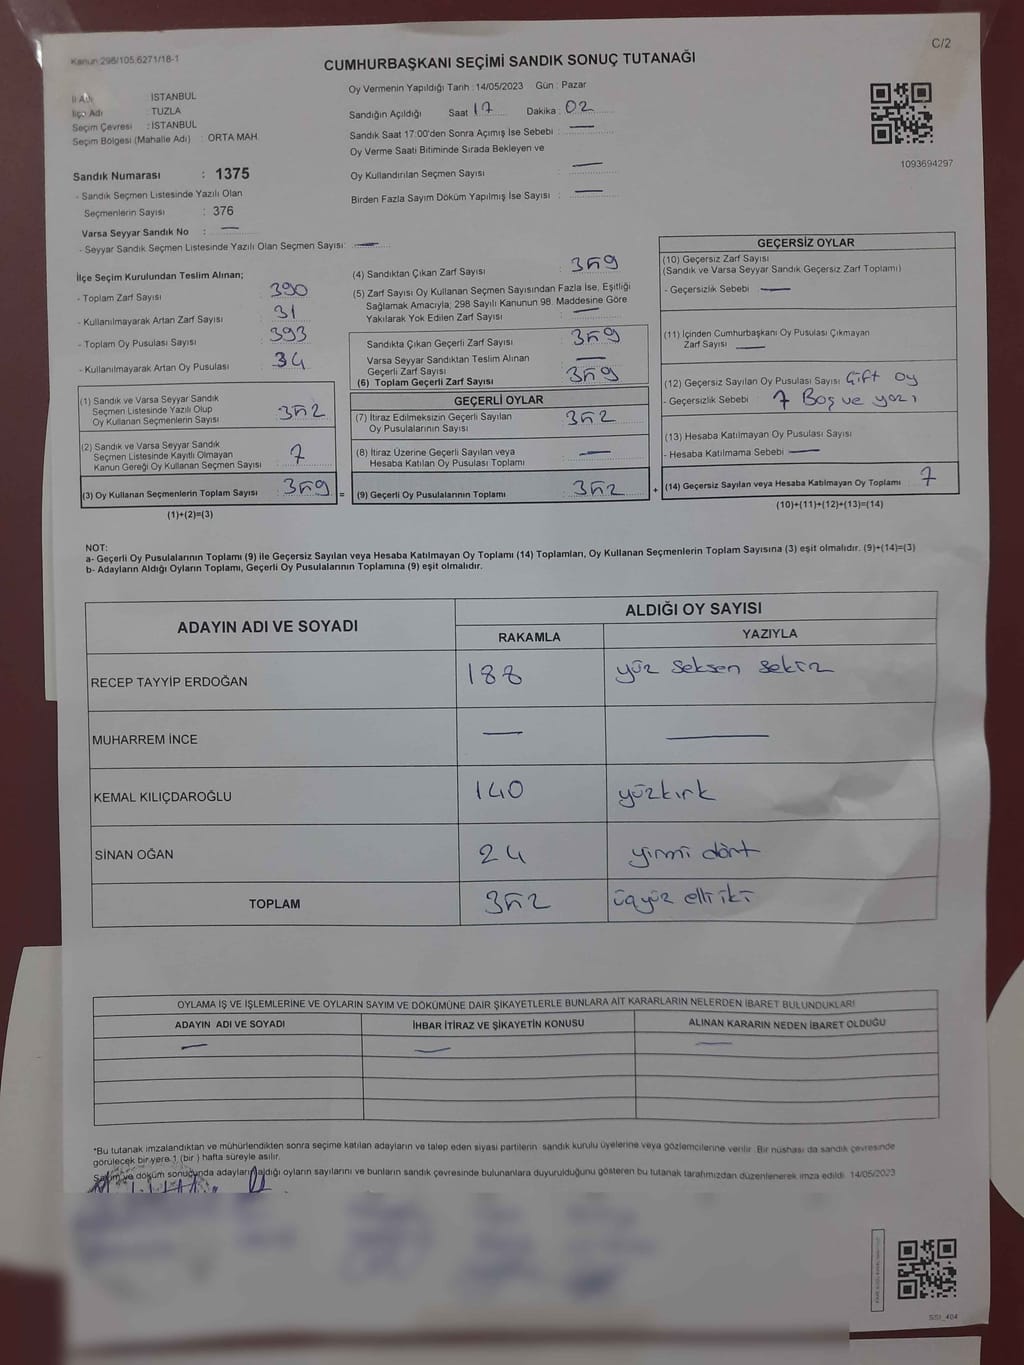 Kanun:298/105,6271/18-1
C/2
CUMHURBAŞKANI SEÇİMİ SANDIK SONUÇ TUTANAĞI
İl Adı : İSTANBUL
İlçe Adı : TUZLA
Seçim Çevresi : İSTANBUL
Seçim Bölgesi (Mahalle Adı) : ORTA MAH.
Sandık Numarası : 1375
- Sandık Seçmen Listesinde Yazılı Olan
Seçmenlerin Sayısı : 376
Varsa Seyyar Sandık No : —
- Seyyar Sandık Seçmen Listesinde Yazılı Olan Seçmen Sayısı: —
Oy Vermenin Yapıldığı Tarih : 14/05/2023 Gün : Pazar
Sandığın Açıldığı Saat 17 Dakika : 02
Sandık Saat 17:00'den Sonra Açımış İse Sebebi : —
Oy Verme Saati Bitiminde Sırada Bekleyen ve
Oy Kullandırılan Seçmen Sayısı : —
Birden Fazla Sayım Döküm Yapılmış İse Sayısı : —
1093694297
İlçe Seçim Kurulundan Teslim Alınan;
- Toplam Zarf Sayısı : 390
- Kullanılmayarak Artan Zarf Sayısı : 31
- Toplam Oy Pusulası Sayısı : 393
- Kullanılmayarak Artan Oy Pusulası : 34
(1) Sandık ve Varsa Seyyar Sandık
Seçmen Listesinde Yazılı Olup
Oy Kullanan Seçmenlerin Sayısı : 352
(2) Sandık ve Varsa Seyyar Sandık
Seçmen Listesinde Kayıtlı Olmayan
Kanun Gereği Oy Kullanan Seçmen Sayısı : 7
(3) Oy Kullanan Seçmenlerin Toplam Sayısı : 359 =
(1)+(2)=(3)
(4) Sandıktan Çıkan Zarf Sayısı : 359
(5) Zarf Sayısı Oy Kullanan Seçmen Sayısından Fazla İse, Eşitliği
Sağlamak Amacıyla; 298 Sayılı Kanunun 98. Maddesine Göre
Yakılarak Yok Edilen Zarf Sayısı : —
Sandıkta Çıkan Geçerli Zarf Sayısı : 359
Varsa Seyyar Sandıktan Teslim Alınan
Geçerli Zarf Sayısı : —
(6) Toplam Geçerli Zarf Sayısı : 359
GEÇERLİ OYLAR
(7) İtiraz Edilmeksizin Geçerli Sayılan
Oy Pusulalarının Sayısı : 352
(8) İtiraz Üzerine Geçerli Sayılan veya
Hesaba Katılan Oy Pusulası Toplamı : —
(9) Geçerli Oy Pusulalarının Toplamı : 352 +
GEÇERSİZ OYLAR
(10) Geçersiz Zarf Sayısı
(Sandık ve Varsa Seyyar Sandık Geçersiz Zarf Toplamı)
- Geçersizlik Sebebi : —
(11) İçinden Cumhurbaşkanı Oy Pusulası Çıkmayan
Zarf Sayısı : —
(12) Geçersiz Sayılan Oy Pusulası Sayısı : Çift oy
- Geçersizlik Sebebi : 7 Boş ve yazı
(13) Hesaba Katılmayan Oy Pusulası Sayısı
- Hesaba Katılmama Sebebi : —
(14) Geçersiz Sayılan veya Hesaba Katılmayan Oy Toplamı : 7
(10)+(11)+(12)+(13)=(14)
NOT:
a- Geçerli Oy Pusulalarının Toplamı (9) ile Geçersiz Sayılan veya Hesaba Katılmayan Oy Toplamı (14) Toplamları, Oy Kullanan Seçmenlerin Toplam Sayısına (3) eşit olmalıdır. (9)+(14)=(3)
b- Adayların Aldığı Oyların Toplamı, Geçerli Oy Pusulalarının Toplamına (9) eşit olmalıdır.
ADAYIN ADI VE SOYADI
ALDIĞI OY SAYISI
RAKAMLA YAZIYLA
RECEP TAYYİP ERDOĞAN 188 yüz seksen sekiz
MUHARREM İNCE — —
KEMAL KILIÇDAROĞLU 140 yüzkırk
SİNAN OĞAN 24 yirmi dört
TOPLAM 352 üçyüz elli iki
OYLAMA İŞ VE İŞLEMLERİNE VE OYLARIN SAYIM VE DÖKÜMÜNE DAİR ŞİKAYETLERLE BUNLARA AİT KARARLARIN NELERDEN İBARET BULUNDUKLARI
ADAYIN ADI VE SOYADI İHBAR İTİRAZ VE ŞİKAYETİN KONUSU ALINAN KARARIN NEDEN İBARET OLDUĞU
— — —
*Bu tutanak imzalandıktan ve mühürlendikten sonra seçime katılan adayların ve talep eden siyasi partilerin sandık kurulu üyelerine veya gözlemcilerine verilir. Bir nüshası da sandık çevresinde
görülecek bir yere 1 (bir ) hafta süreyle asılır.
Sayım ve döküm sonucunda adayların aldığı oyların sayılarını ve bunların sandık çevresinde bulunanlara duyurulduğunu gösteren bu tutanak tarafımızdan düzenlenerek imza edildi. 14/05/2023
SSI_404